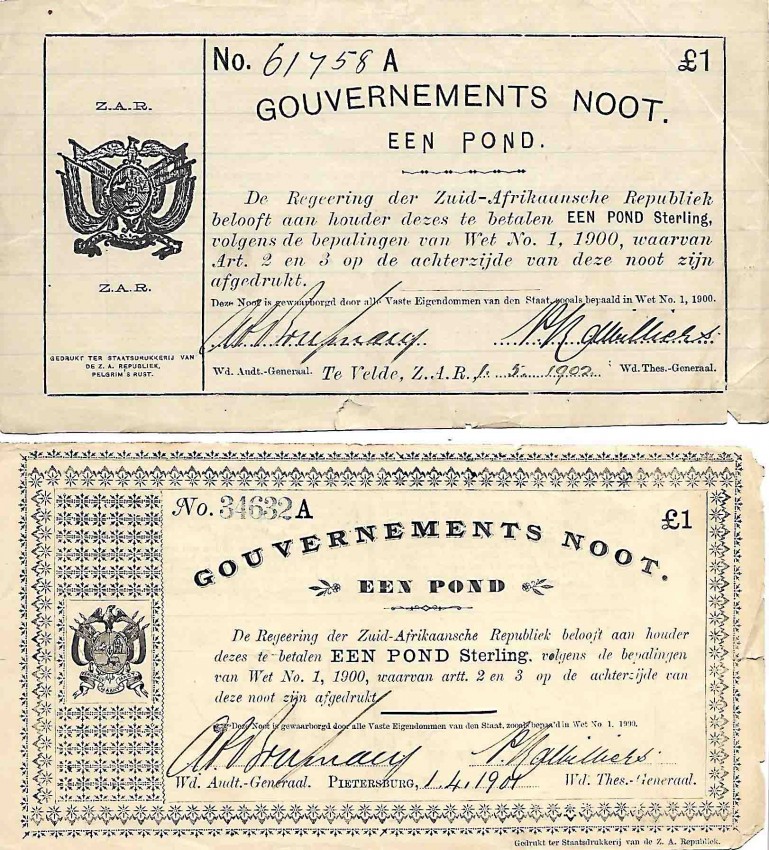 No. 61758 A £1
Z.A.R.
GOUVERNEMENTS NOOT.
EEN POND.
De Regeering der Zuid-Afrikaansche Republiek
belooft aan houder dezes te betalen EEN POND Sterling,
volgens de bepalingen van Wet No. 1, 1900, waarvan
Art. 2 en 3 op de achterzijde van deze noot zijn
afgedrukt.
Z.A.R.
Deze Noot is gewaarborgd door alle Vaste Eigendommen van den Staat, zooals bepaald in Wet No. 1, 1900.
GEDRUKT TER STAATSDRUKKERIJ VAN
DE Z. A. REPUBLIEK,
PELGRIM'S RUST.
Wd. Audt.-Generaal. Te Velde, Z.A.R. 1. 5. 1902. Wd. Thes.-Generaal.
No. 34632 A £1
GOUVERNEMENTS NOOT.
EEN POND
De Regeering der Zuid-Afrikaansche Republiek belooft aan houder
dezes te betalen EEN POND Sterling, volgens de bepalingen
van Wet No. 1, 1900, waarvan artt. 2 en 3 op de achterzijde van
deze noot zijn afgedrukt
Deze Noot is gewaarborgd door alle Vaste Eigendommen van den Staat, zooals bepaald in Wet No 1, 1900.
Wd. Audt.-Generaal. PIETERSBURG, 1.4.1901 Wd. Thes.-Generaal.
Gedrukt ter Staatsdrukkerij van de Z. A. Republiek.